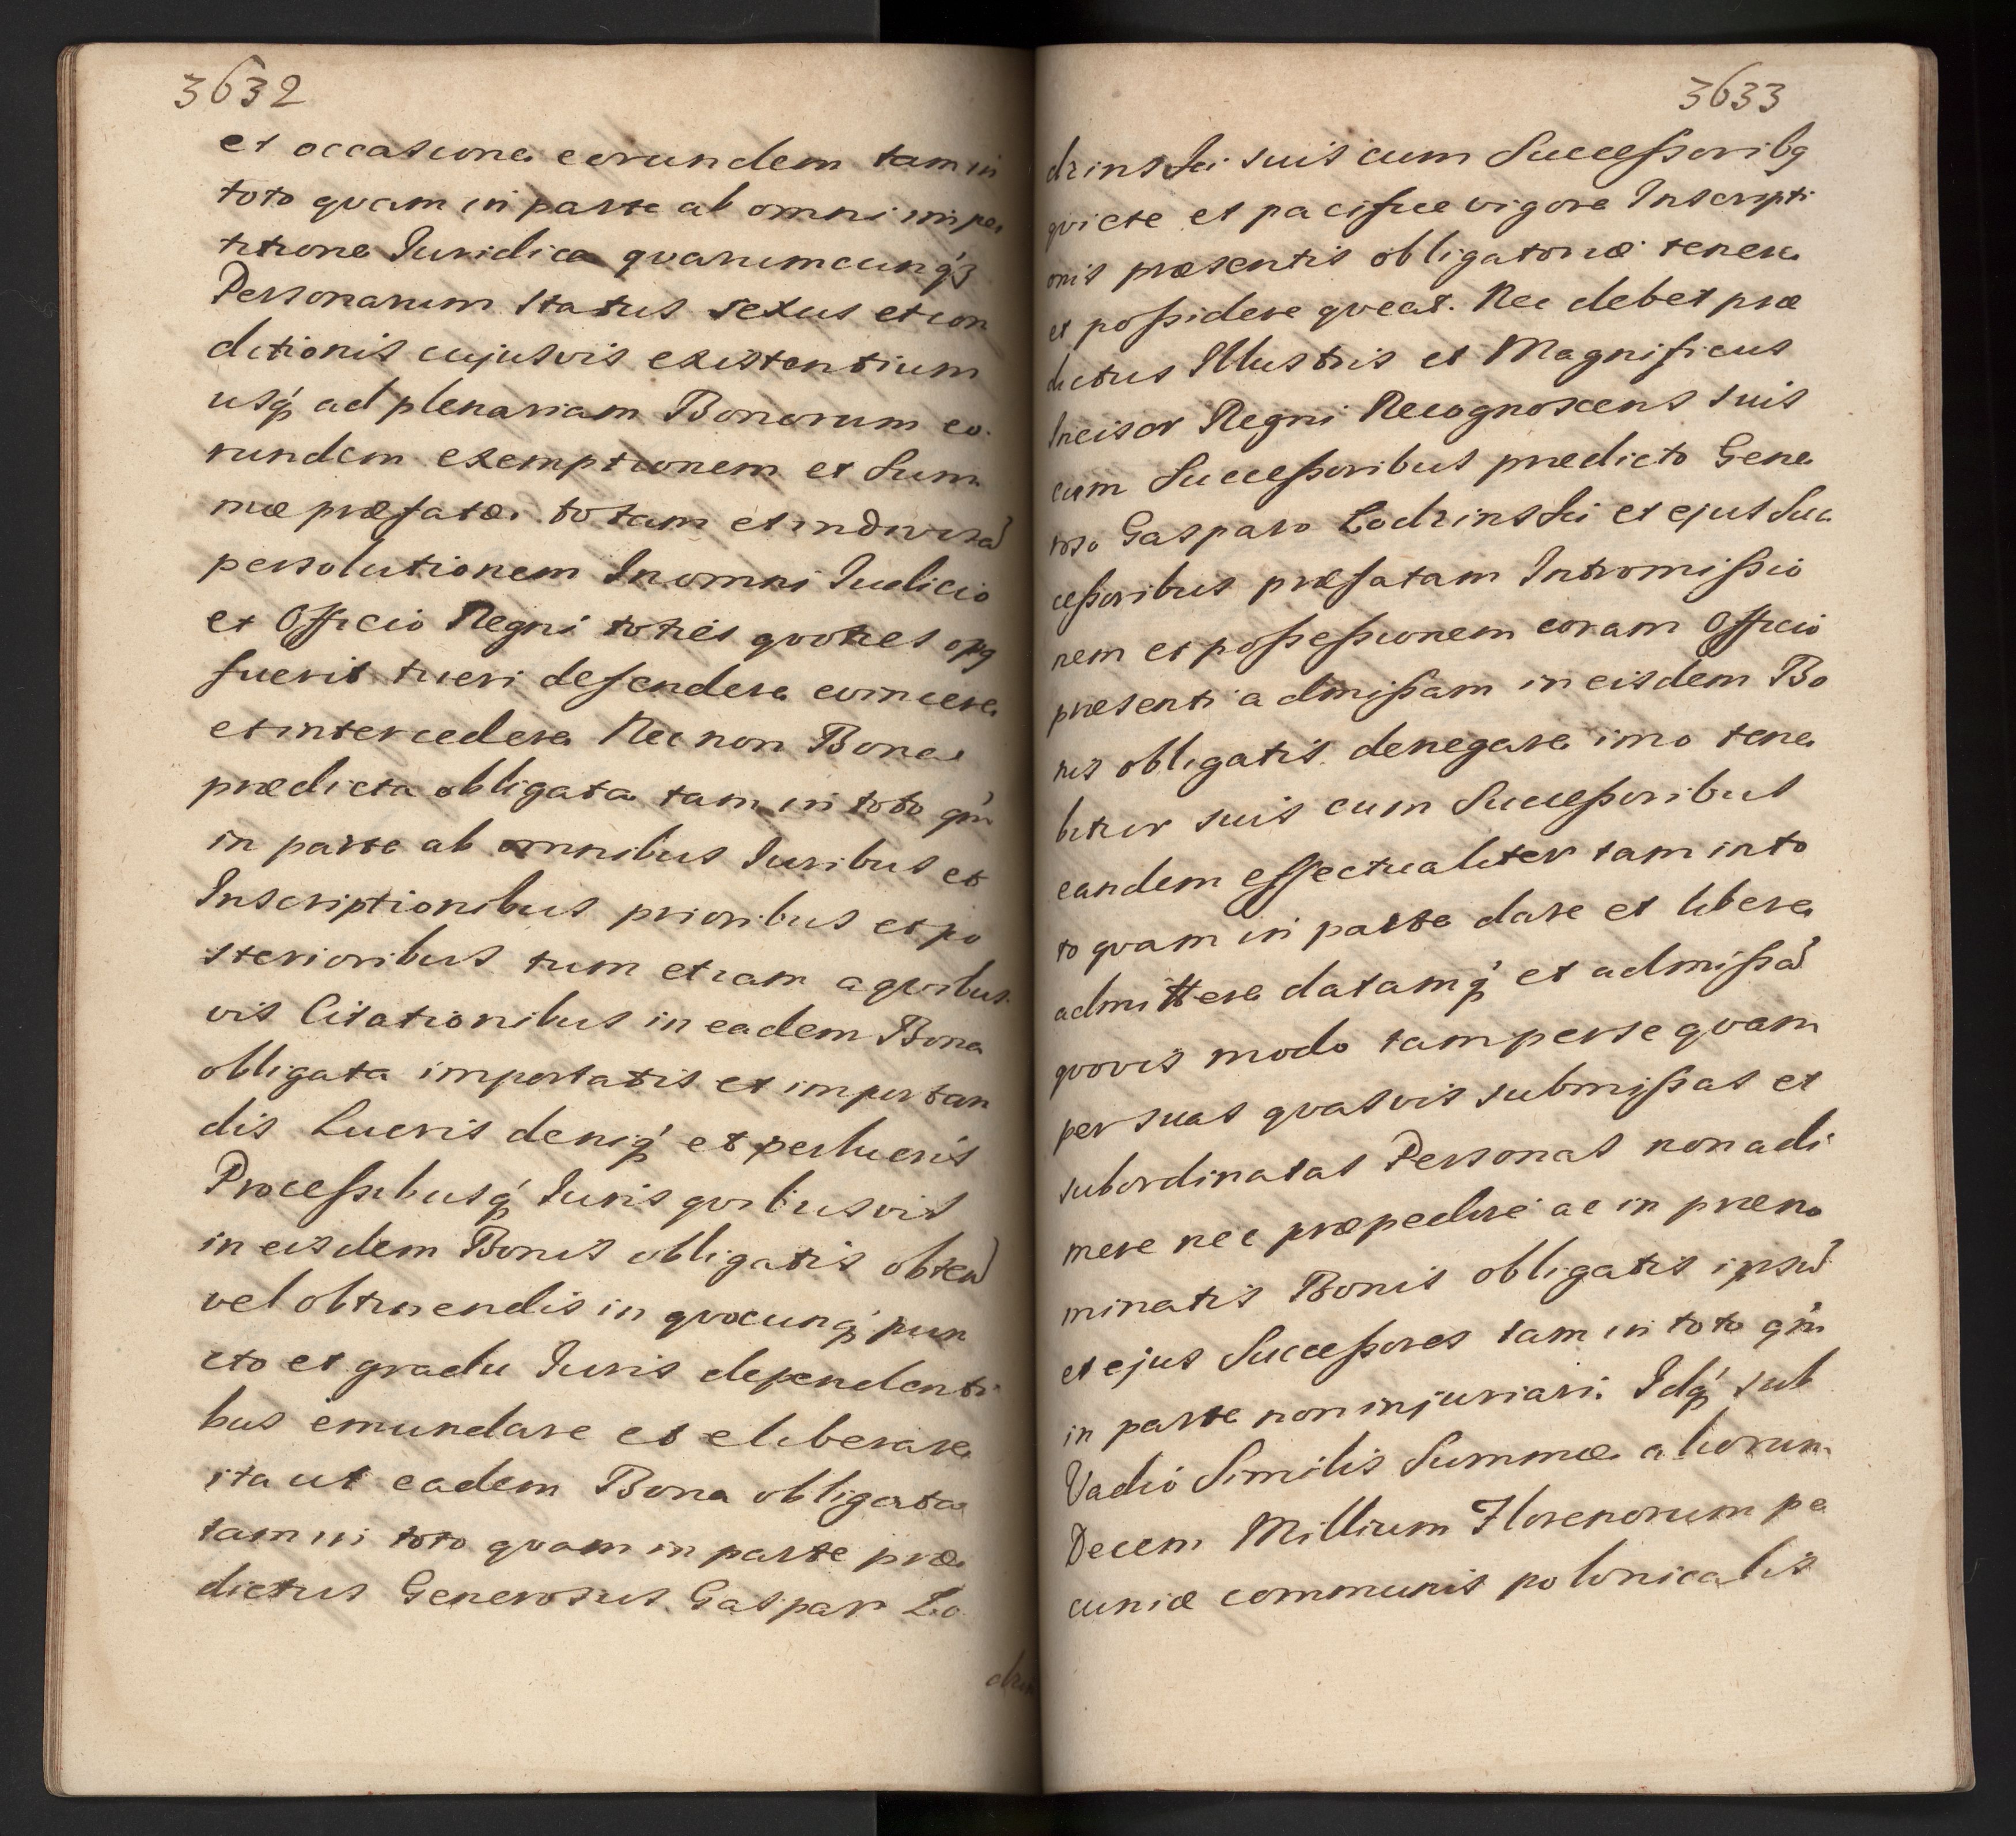 3632
et occasione eorundem tam in
toto qvam in parte ab omni impe
titione Juridica qvarumcunq́3
Personarum status sexus et con
ditionis cujusvis existentium
usq́ ad plenariam Bonorum eo
rundem exemptionem et Sum
mæ præfatæ totam et indivisã
persolutionem In omni Judicio
et Officio Regni toties qvoties opq
fuerit tueri defendere evincere
et intercedere Nec non Bona
prædicta obligata tam in toto qm̃
in parte ab omnibus Juribus et
Inscriptionibus prioribus et po
sterioribus tum etiam a qvibus
vis Citationibus in eadem Bona
obligata importatis et importan
dis Lucris deniq́ et perlucris
Processibusq́ Juris qvibusvis
in eisdem Bonis obligatis obten̄
vel obtinendis in qvocunq́ pun
cto et gradu Juris dependenti
bus emundare et eliberare
ita ut eadem Bona obligata
tam in toto qvam in parte præ
dictus Generosus Gaspar Lo
drin
3633
drinski suis cum Successoribq
qviete et pacifice vigore Inscripti
onis præsentis obligatoriæ tenere
et possidere qveat. Nec debet præ
dictus Illustris et Magnificus
Incisor Regni Recognoscens suis
cum Successoribus prædicto Gene
roso Gasparo Lodzinski et ejus Suc
cessoribus præfatam Intromissio
nem et possessionem coram Officio
præsenti admissam in eisdem Bo
nis obligatis denegare imo tene
bitur suis cum Successoribus
eandem effectualiter tam in to
to qvam in parte dare et libere
admittere datamq́ et admissã
qvovis modo tam per se qvam
per suas qvasvis submissas et
subordinatas Personas non adi
mere nec præpedire ac in præno
minatis Bonis obligatis ipsũ
et ejus Successores tam in toto qm̃
in parte non injuriari. Idq́ sub
Vadio Similis Summæ aliorum
Decem Millium Florenorum pe
cuniæ communis polonicalis